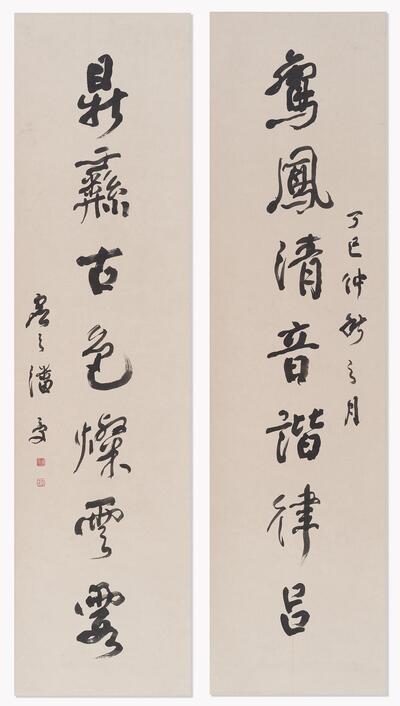 鸞鳳清音諧律呂
丁巳仲秋之月
鼎彝古色燦雲霞
虛之潘受